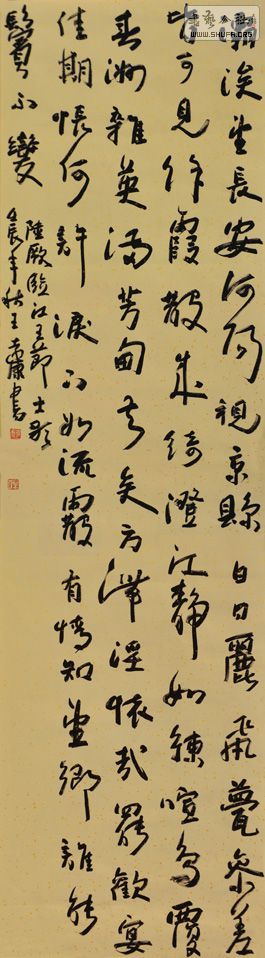 灞涘望長安河陽視京縣白日麗飛甍參差
皆可見餘霞散成綺澄江靜如練喧鳥覆
春洲雜英滿芳甸去矣方滯淫懷哉罷歡宴
佳期悵何許淚下如流霰有情知望鄉誰能
鬒不變
陸厥臨江王節士歌
壬辰年秋王康書
WWW.SHUFA.ORG